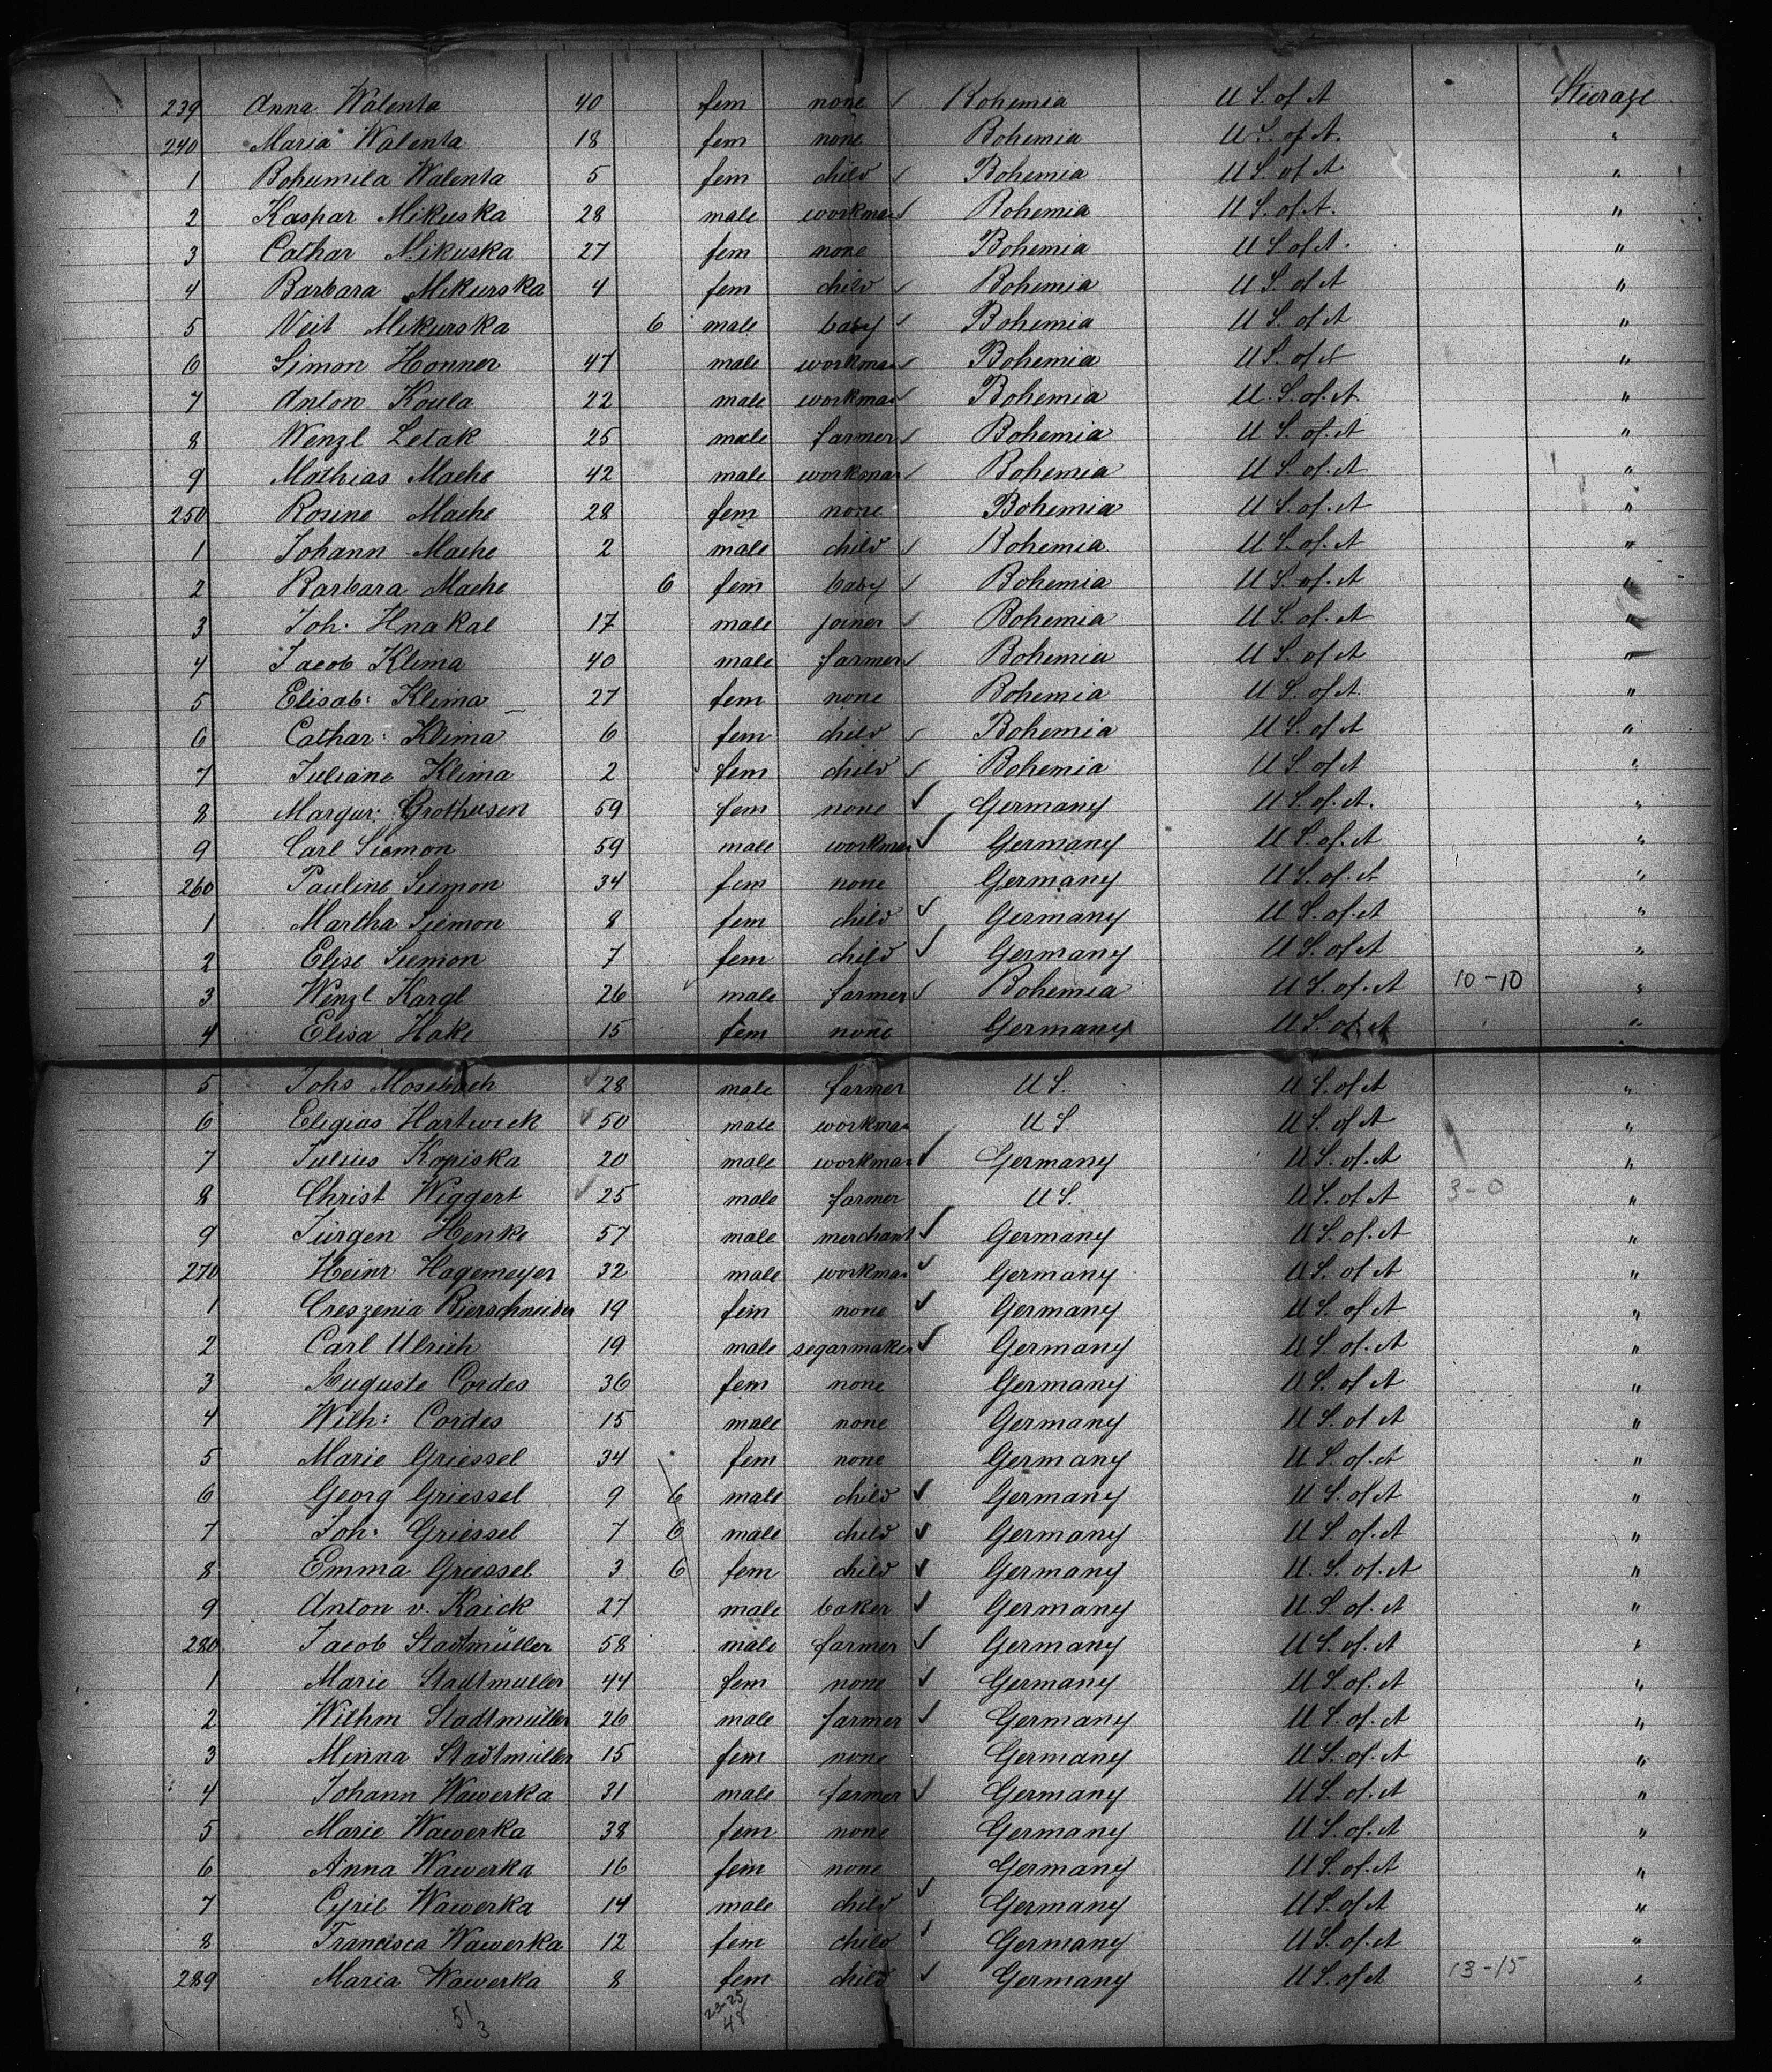 239 Anna Walenta 40 fem none ✓ Bohemia U S. of A Steerage
240 Maria Walenta 18 fem none Bohemia U S. of A. "
1 Bohumila Walenta 5 fem child ✓ Bohemia U S. of A "
2 Kaspar Mikuska 28 male workman ✓ Bohemia U S. of A. "
3 Cathar Mikuska 27 fem none Bohemia U S. of A. "
4 Barbara Mikurska 4 fem child ✓ Bohemia U S. of A "
5 Veit Mikurska 6 male baby ✓ Bohemia U S. of A "
6 Simon Honner 47 male workman ✓ Bohemia U S. of A "
7 Anton Koula 22 male workman ✓ Bohemia U. S. of. A. "
8 Wenzl Letak 25 male farmer ✓ Bohemia U S. of. A "
9 Mathias Mache 42 male workman ✓ Bohemia U S. of. A "
250 Rosine Mache 28 fem none Bohemia U S. of. A "
1 Johann Mache 2 male child ✓ Bohemia U S. of. A "
2 Barbara Mache 6 fem baby ✓ Bohemia U S. of. A "
3 Joh. Hnakal 17 male joiner ✓ Bohemia U S. of. A "
4 Jacob Klima 40 male farmer ✓ Bohemia U S. of A "
5 Elisab: Klima 27 fem none Bohemia U S. of A. "
6 Cathar: Klima 6 fem child ✓ Bohemia U S. of A "
7 Juliane Klima 2 fem child ✓ Bohemia U S. of A "
8 Margar: Grothusen 59 fem none ✓ Germany U S. of. A. "
9 Carl Siemon 59 male workman ✓ Germany U S. of. A "
260 Pauline Siemon 34 fem none Germany U S. of. A "
1 Martha Siemon 8 fem child ✓ Germany U S. of. A "
2 Elise Siemon 7 fem child ✓ Germany U S. of A "
3 Wenzl Kargl 26 male farmer ✓ Bohemia U S. of. A 10-10 "
4 Elisa Hake 15 fem none Germany U S. of A "
5 Johs Mosebach ✓ 28 male farmer U S. U S. of A "
6 Eligias Hartwick ✓ 50 male workman U S. U S. of A "
7 Julius Kopiska 20 male workman ✓ Germany U S. of. A "
8 Christ Wiggert ✓ 25 male farmer U S. U S. of A 3-0 "
9 Jürgen Henke 57 male merchant ✓ Germany U S. of. A "
270 Heinr Hagemeyer 32 male workman ✓ Germany U S. of A "
1 Creszenia Bierschneider 19 fem none ✓ Germany U S. of A "
2 Carl Ulrich 19 male segarmaker ✓ Germany U S. of. A "
3 Auguste Cordes 36 fem none Germany U S. of A "
4 Wilh: Cordes 15 male none Germany U S. of A "
5 Marie Griessel 34 fem none Germany U S. of. A "
6 Georg Griessel 9 6 male child ✓ Germany U S. of A "
7 Joh. Griessel 7 6 male child ✓ Germany U S. of. A "
8 Emma Griessel 3 6 fem child ✓ Germany U. S. of. A "
9 Anton v. Kaick 27 male baker ✓ Germany U. S. of. A "
280 Jacob Stadtmüller 58 male farmer ✓ Germany U S. of. A "
1 Marie Stadtmuller 44 fem none ✓ Germany U S. of. A "
2 Wilhm Stadtmüller 26 male farmer ✓ Germany U S. of. A "
3 Minna Stadtmüller 15 fem none Germany U S. of. A "
4 Johann Wawerka 31 male farmer ✓ Germany U S. of. A "
5 Marie Wawerka 38 fem none Germany U S. of. A "
6 Anna Wawerka 16 fem none Germany U S. of. A "
7 Cyril Wawerka 14 male child ✓ Germany U S. of A "
8 Francisca Wawerka 12 fem child ✓ Germany U S. of. A "
289 Maria Wawerka 8 fem child ✓ Germany U S. of A 13-15 "
51 23-25
3 48